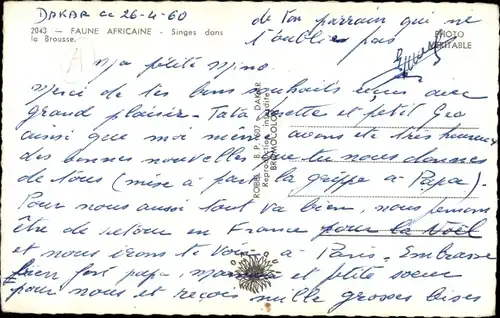 DAKAR ce 26-4-60
2043 — FAUNE AFRICAINE - Singes dans
la Brousse.
Ma p'tite Mino.
Merci de tes bons souhaits reçus avec
grand plaisir - Tata et petit Geo
aussi que moi même avons été très heureux
des bonnes nouvelles que tu nous donnes
de tous (mise à part la grippe à Papa).
Pour nous aussi tout va bien, nous pensons
être de retour en France pour la Noël
et nous irons te voir à Paris - Embrasse
bien fort papa, maman et petite sœur
pour nous et reçois mille grosses bises
de ton parrain qui ne
t'oublie pas
PHOTO
VÉRITABLE
ROBEL - B.P. 1607 - DAKAR
Reproduction interdite
BROMOCOLOR